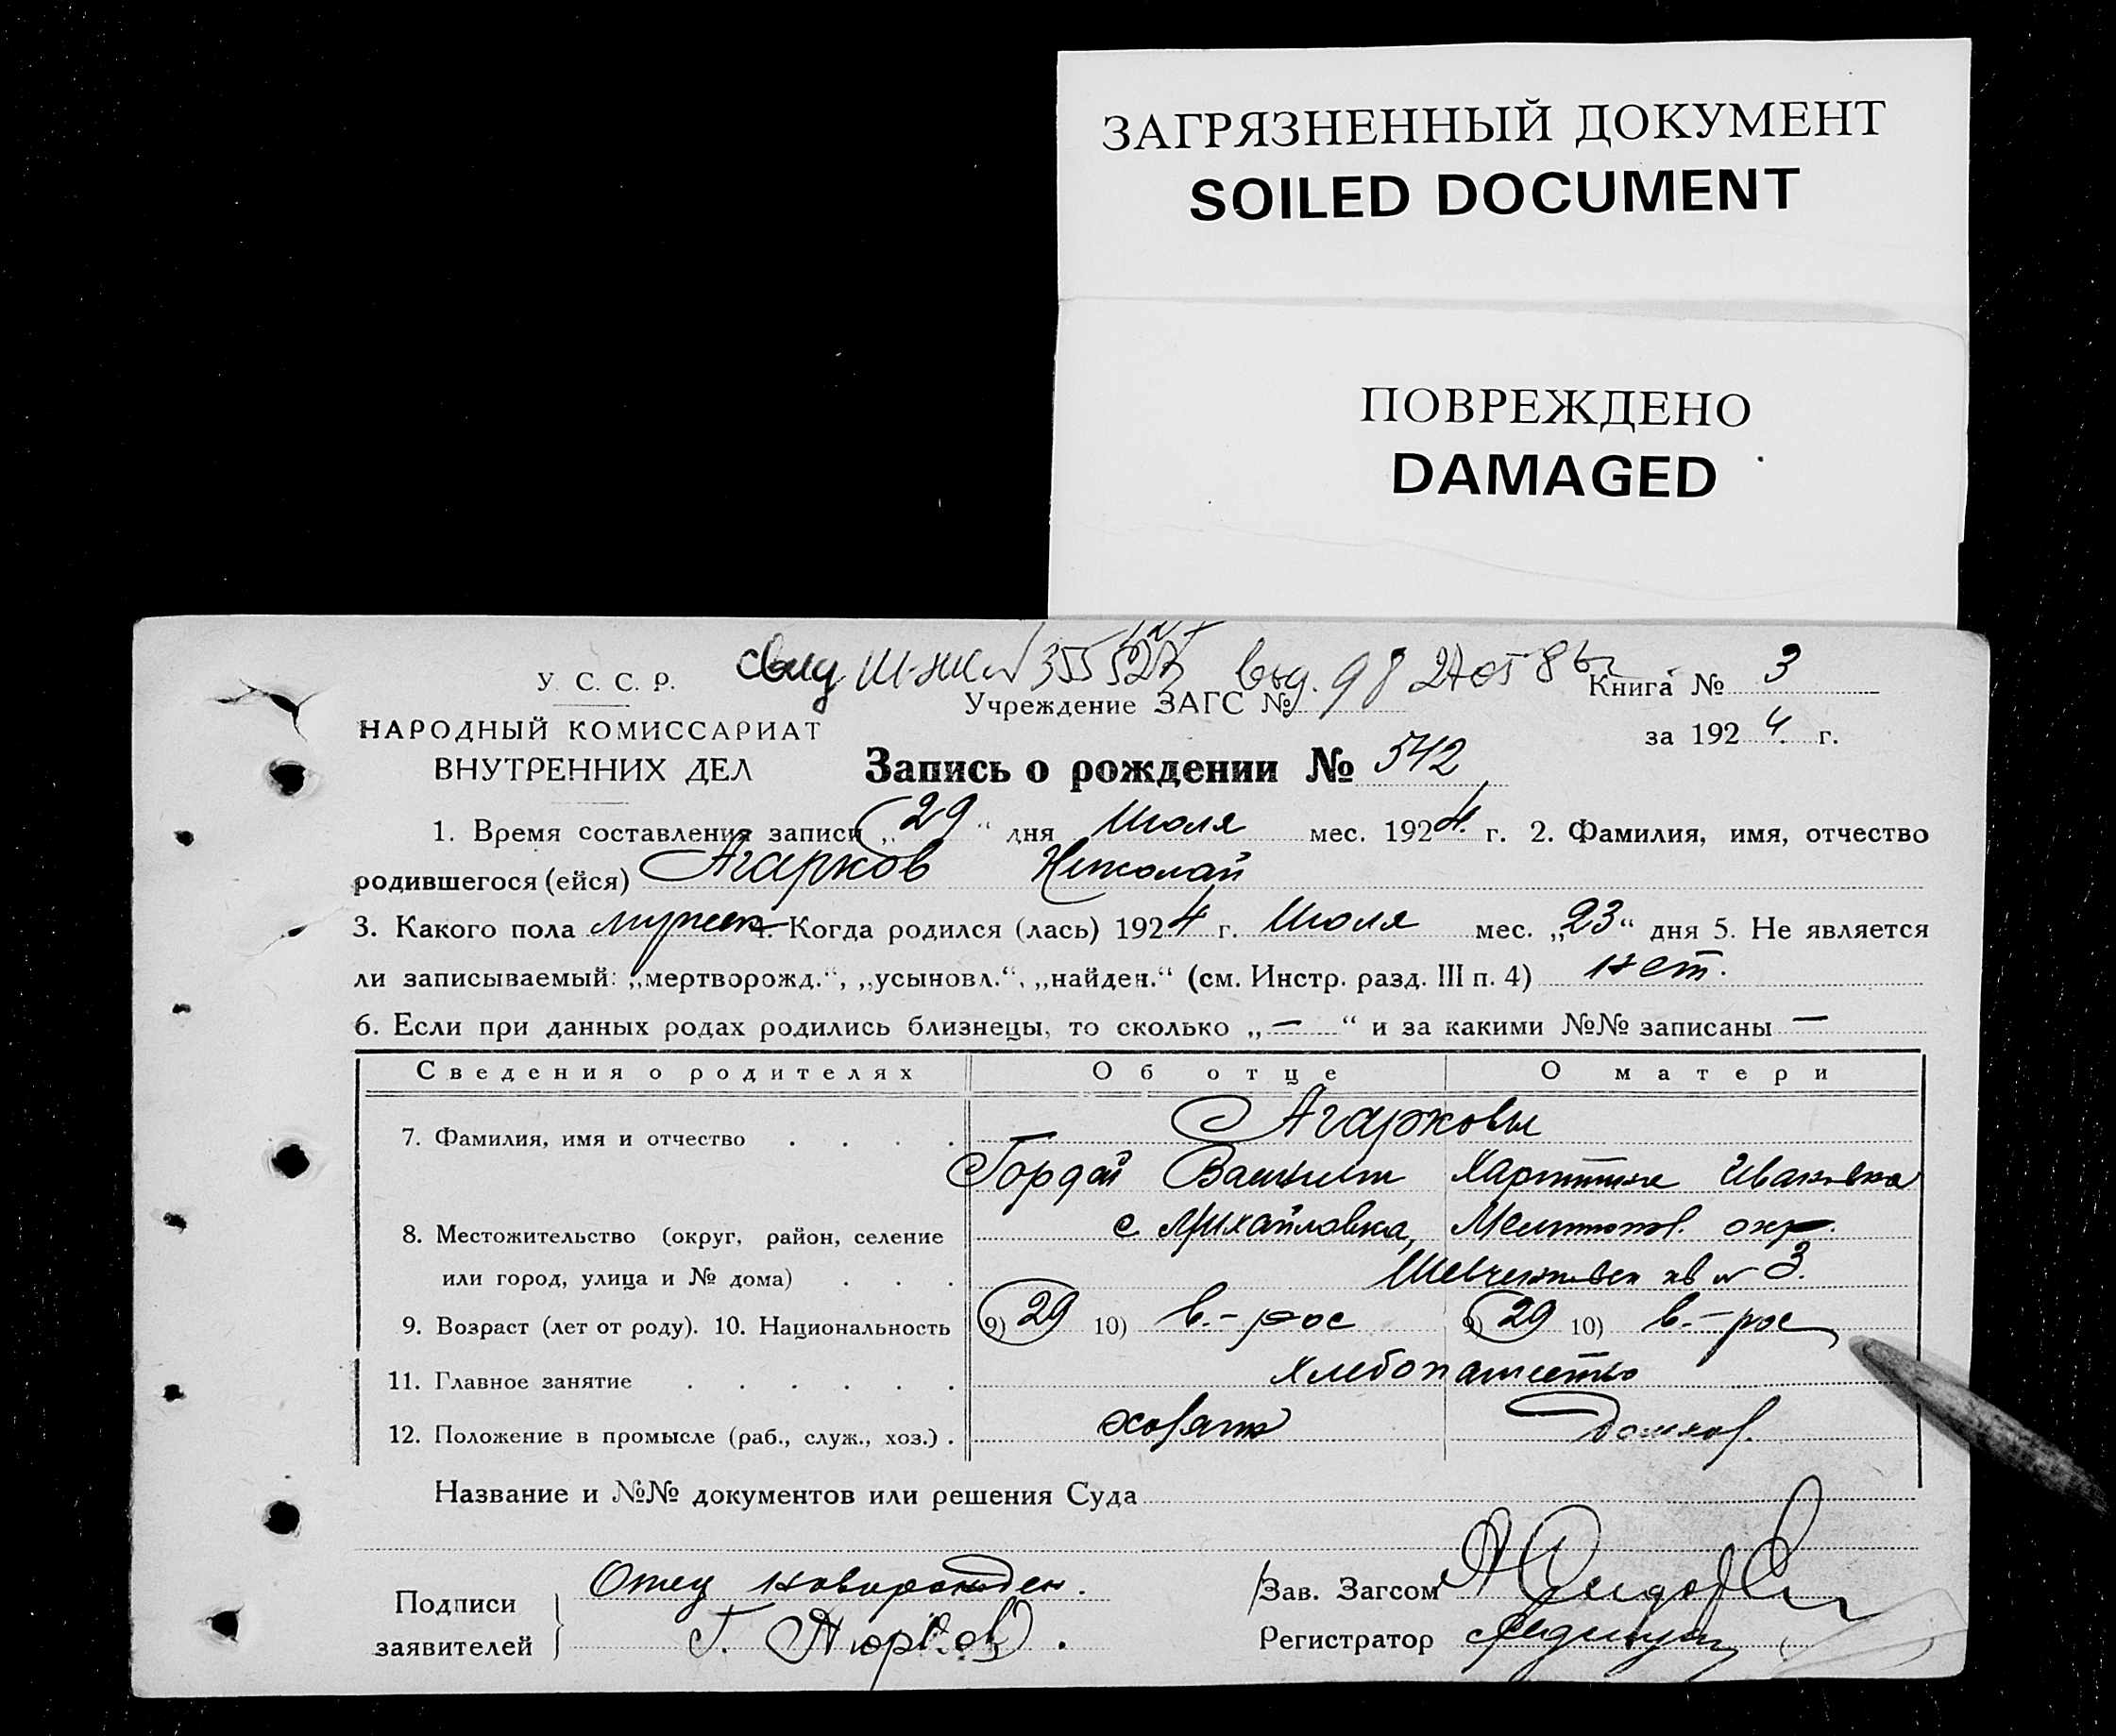 ЗАГРЯЗНЕННЫЙ ДОКУМЕНТ
SOILED DOCUMENT
ПОВРЕЖДЕНО
DAMAGED
У. С. С. Р.
НАРОДНЫЙ КОМИССАРИАТ
ВНУТРЕННИХ ДЕЛ
свид
Учреждение ЗАГС № 98
Книга № 3
за 1924 г.
Запись о рождении № 542
1. Время составления записи „29“ дня Июля мес. 1924 г. 2. Фамилия, имя, отчество
родившегося (ейся) Агарков Николай
3. Какого пола мужск 4. Когда родился (лась) 1924 г. Июля мес. „23“ дня 5. Не является
ли записываемый: „мертворожд.“, „усыновл.“, „найден.“ (см. Инстр. разд. III п. 4) нет.
6. Если при данных родах родились близнецы, то сколько „—“ и за какими №№ записаны —
Сведения о родителях Об отце О матери
7. Фамилия, имя и отчество . . . . Агарковы
Гордей Харитина Ивановна
8. Местожительство (округ, район, селение с Михайловка, Мелитопол. окр.
или город, улица и № дома) . . . Шевченковск кв № 3.
9. Возраст (лет от роду). 10. Национальность 9) 29 10) в.-рос 9) 29 10) в.-рос
11. Главное занятие . . . . . . хлебопашество
12. Положение в промысле (раб., служ., хоз.) . хозяин домхоз.
Название и №№ документов или решения Суда
Подписи заявителей } Отец новорожден.
Г. Агарков.
Зав. Загсом
Регистратор